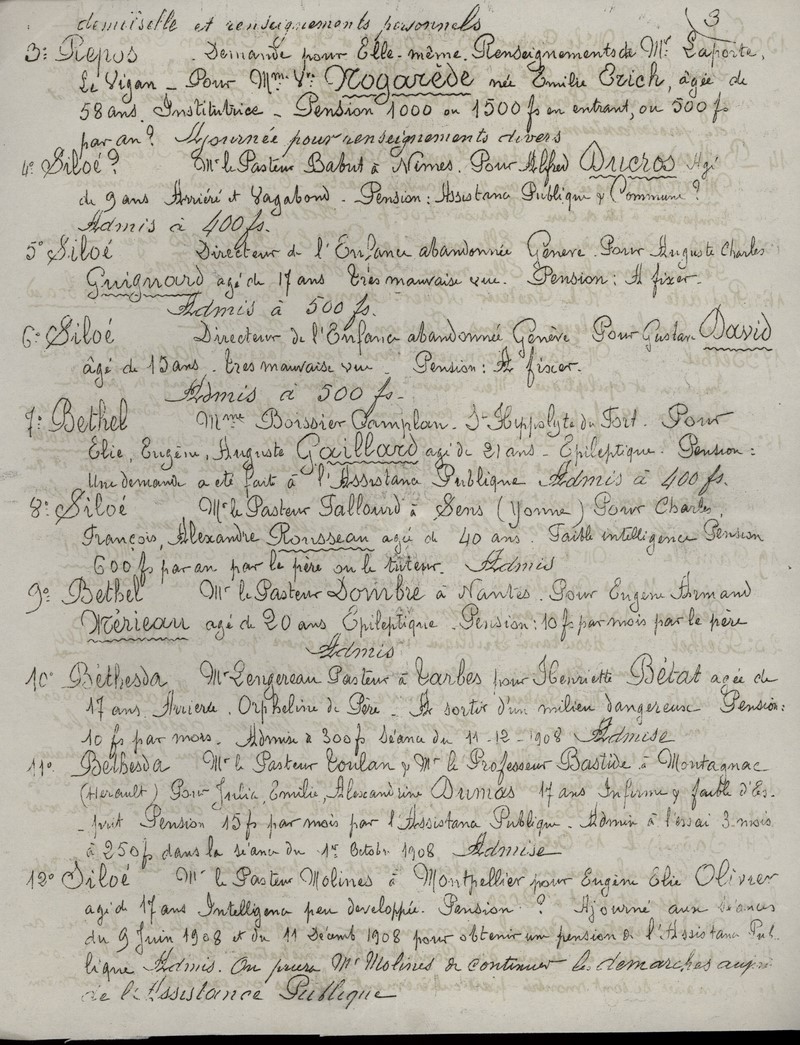 3
demoiselle et renseignements personnels
3º Repos . Demande pour Elle-même. Renseignements de Mr Laporte,
Le Vigan _ Pour Mme Vve Nogarède née Emilie Erich, âgée de
58 ans. Institutrice _ Pension 1000 ou 1500 fs en entrant, ou 500 fs
par an? Ajournée pour renseignements divers
4º Siloé? Mr le Pasteur Babut à Nîmes. Pour Alfred Ducros Agé
de 9 ans Arriéré et Vagabond. Pension: Assistance Publique & Commune?
Admis à 400 fs.
5º Siloé Directeur de l'Enfance abandonnée Genève. Pour Auguste Charles
Guignard agé de 17 ans très mauvaise vue. Pension: A fixer.
Admis à 500 fs.
6º Siloé Directeur de l'Enfance abandonnée Genève Pour Gustave David
âgé de 15 ans. très mauvaise vue. Pension: A fixer.
Admis à 500 fs.
7º Bethel Mme Boissier Camplan. St Hippolyte du Fort. Pour
Elie, Eugène, Auguste Gaillard agé de 21 ans _ Epileptique. Pension:
Une demande a été fait à l'Assistance Publique Admis à 400 fs.
8º Siloé Mr le Pasteur Fallourd à Sens (Yonne) Pour Charles,
François, Alexandre Rousseau agée de 40 ans. Faible intelligence Pension
600 fs par an par le père ou le tuteur. Admis
9º Bethel Mr le Pasteur Dombre à Nantes. Pour Eugène Armand
Mérieau agé de 20 ans Epileptique. Pension: 10 fs par mois par le père
Admis
10º Béthesda Mr Lengereau Pasteur à Tarbes pour Henriette Bétat agée de
17 ans Arriérée. Orpheline de Père _ A sortir d'un milieu dangereuse Pension:
10 fs par mois. Admise à 300 fs Séance du 11-12-1908 Admise
11º Bethesda Mr le Pasteur Toulan & Mr le Professeur Bastide à Montagnac
(Herault) Pour Julie, Emilie, Alexandrine Dumas 17 ans Infirme & faible d'Es-
-prit Pension 15 fs par mois par l'Assistance Publique _ Admise à l'essai 3 mois
à 250 fs dans la séance du 1er Octobre 1908 Admise
12º Siloé Mr le Pasteur Molines à Montpellier pour Eugène Elie Olivier
agé de 17 ans Intelligence peu developpée. Pension? Ajourné aux Séances
du 9 Juin 1908 et du 11 Décemb 1908 pour obtenir une pension de l'Assistance Pub-
lique Admis. On priera Mr Molines de continuer les démarches auprès
de l'Assistance Publique